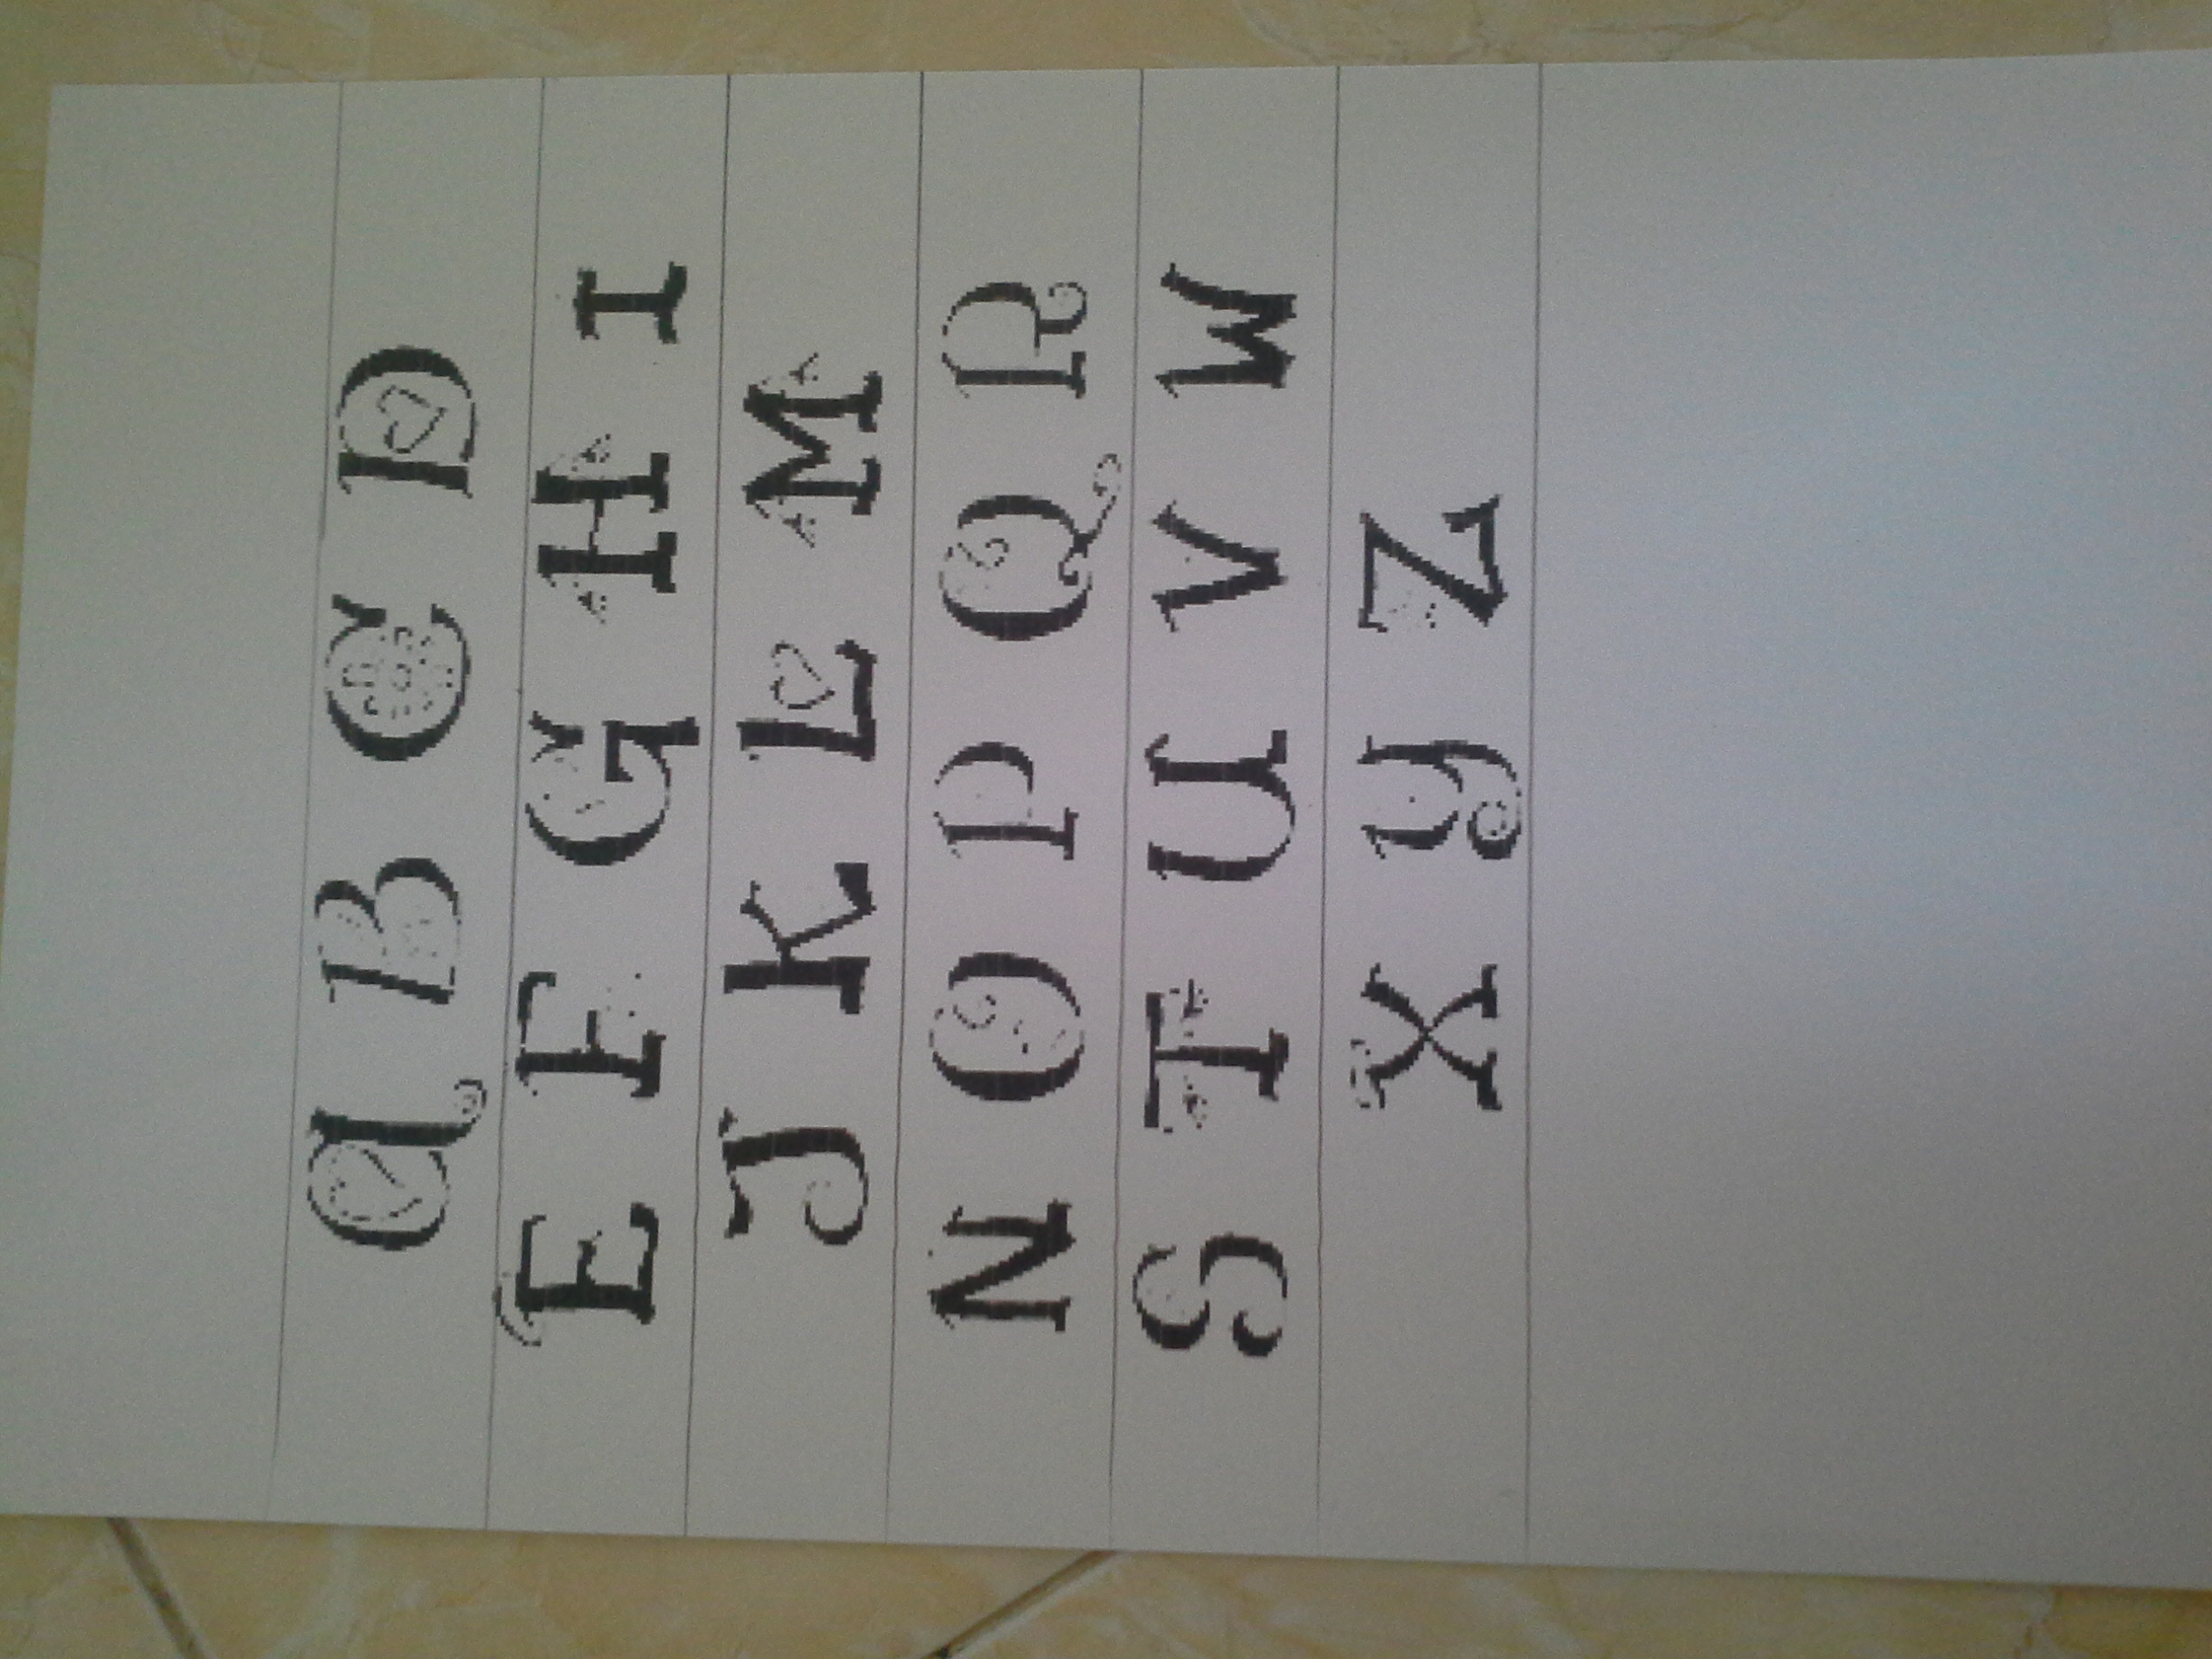 A B C D
E F G H I
J K L M
N O P Q R
S T U V W
X Y Z